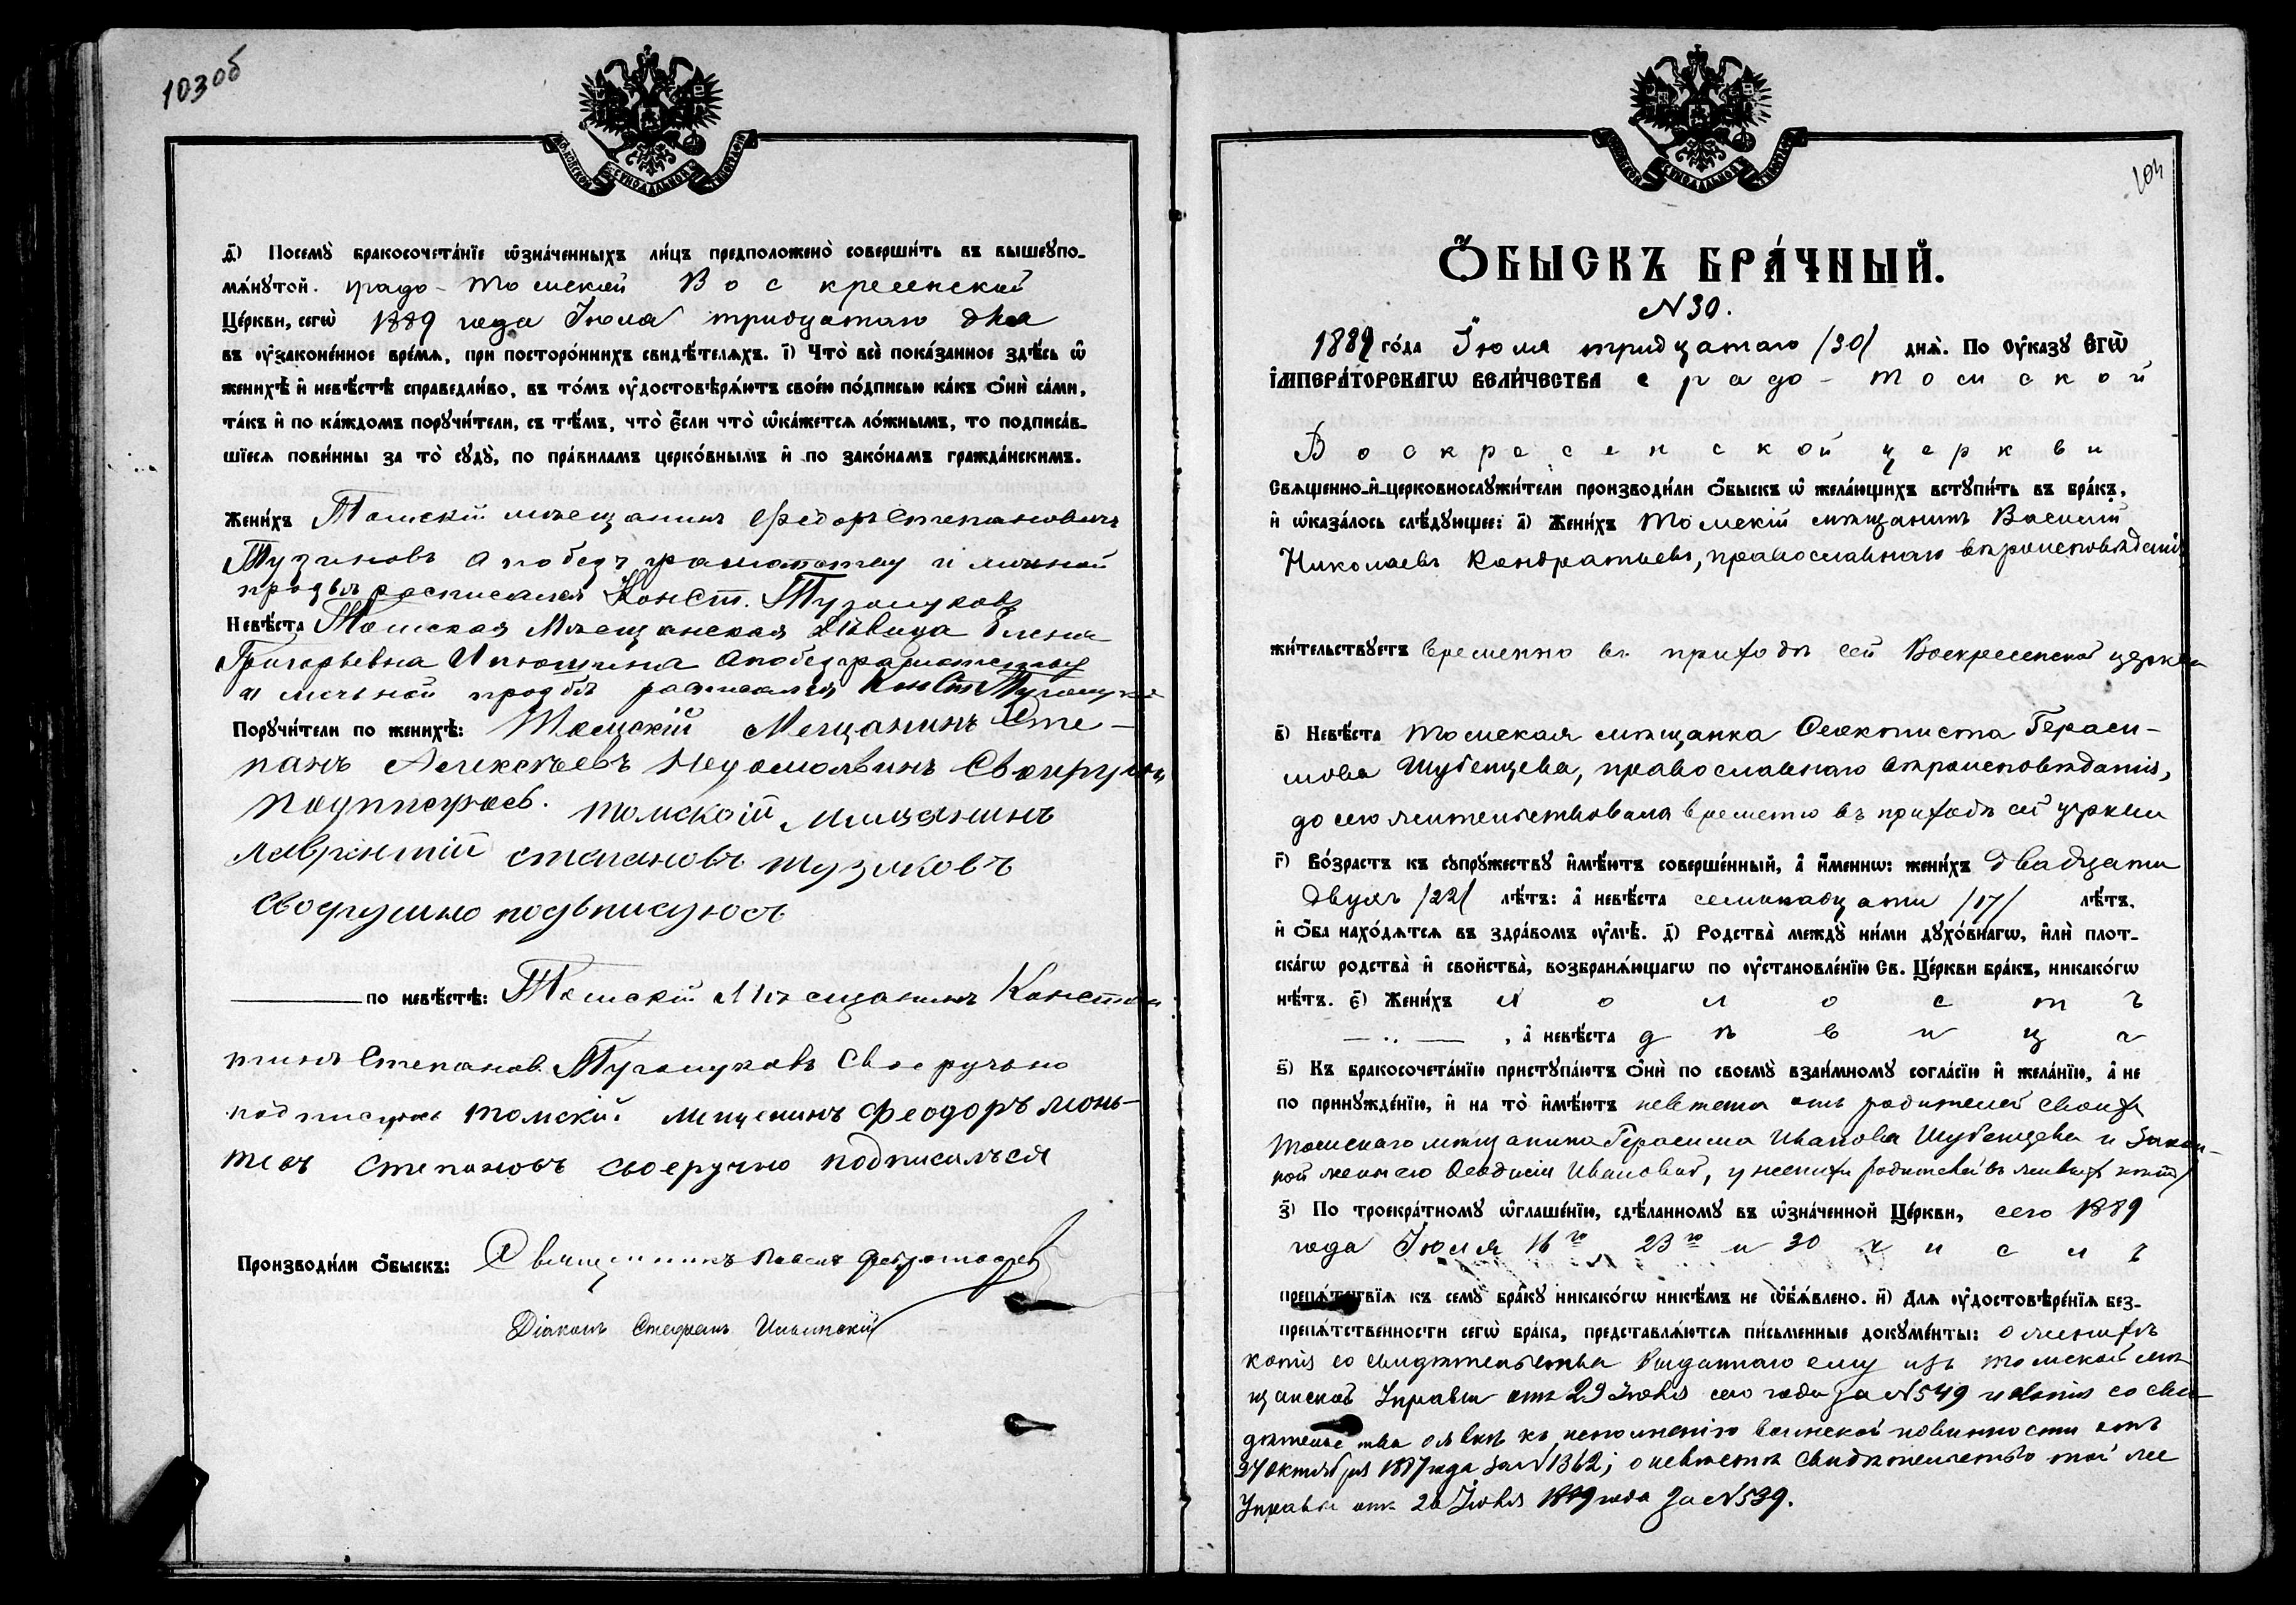 103об
А҃) Посемꙋ̀ бракосочета́нїе ѡ҆зна́ченныхъ ли́цъ предположено̀ соверши́ть въ вышеꙋпо-
мѧ́нꙋтой. градо-Томской Воскресенской
Це́ркви, сегѡ̀ 1889 года Іюля тридцатаго дня
въ ᲂу҆законе́нное вре́мѧ, при посторо́ннихъ свидѣ́телѧхъ. І҃) Что̀ всѐ пока́занное здѣ́сь ѡ҆
женихѣ̀ и҆ невѣ́стѣ справедли́во, въ то́мъ ᲂу҆достовѣрѧ́ютъ свое́ю по́дписью ка́къ ѻ҆нѝ са́ми,
та́къ и҆ по ка́ждомъ порꙋчи́тели, съ тѣ́мъ, что̀ є҆́сли что̀ ѡ҆ка́жетсѧ ло́жнымъ, то подписа́в-
шїесѧ пови́нны за то̀ сꙋдꙋ̀, по пра́виламъ церко́внымъ и҆ по зако́намъ гражда́нскимъ.
Жени́хъ Томскій мѣщанинъ Федоръ Степановичъ
Тузиковъ а по безграмотству и личной
прозьбѣ росписался Конст.
Невѣ́ста Томская Мѣщанская Дѣвица Елена
Григорьевна а по безграмотству
и личной прозбѣ росписался Конст
Порꙋчи́тели по женихѣ̀: Томскій Мещанинъ Сте-
панъ Алексѣевъ
томский мещанинъ
лаврентий степановъ тузиковъ
своеручно подьписуюсь
по невѣ́стѣ: Томскій Мѣщанинъ Констан
тинъ Степанов. Своеручно
подписуюсь томский мещенинъ Феодоръ
Степановъ своеручно подписалься
Производи́ли ѻ҆́быскъ: Священникъ Павелъ
Діаконъ Стефанъ Ильинскій
104
Ѻ҆́БЫСКЪ БРА́ЧНЫЙ.
N 30.
1889 го́да Іюля тридцатаго /30/ днѧ̀. По ᲂу҆казꙋ ЕГѠ̀
ІМПЕРА́ТОРСКАГѠ ВЕЛИ́ЧЕСТВА градо-Томской
Воскресенской церкви
Свѧщенно-и҆-церковнослꙋжи́тели производи́ли ѻ҆́быскъ ѡ҆ жела́ющихъ встꙋпи́ть въ бра́къ,
и҆ ѡ҆каза́лось слѣ́дꙋющее: а҃) Жени́хъ Томскій мѣщанинъ Василій
Николаевъ Кондратьевъ, православнаго вѣроисповѣданія
жи́тельствꙋетъ временно въ приходѣ сей Воскресенской церкви
в҃) Невѣ́ста томская мѣщанка Ѳеоктиста Гераси-
мова Шубенцева, православнаго вѣроисповѣданія,
до сего жительствовала временно въ приходѣ сей церкви
г҃) Во́зрастъ къ сꙋпрꙋ́жествꙋ и҆мѣ́ютъ соверше́нный, а҆ и҆́меннѡ: жени́хъ двадцати
двухъ /22/ лѣ́тъ: а҆ невѣ́ста семнадцати /17/ лѣ́тъ.
и҆ ѻ҆́ба нахо́дѧтсѧ въ здра́вомъ ᲂу҆мѣ̀. д҃) Родства̀ междꙋ̀ ни́ми дꙋхо́внагѡ, и҆лѝ плот-
ска́гѡ родства̀ и҆ свойства̀, возбранѧ́ющагѡ по ᲂу҆становле́нїю Св. Це́ркви бра́къ, никако́гѡ
нѣ́тъ. є҃) Жени́хъ холостъ
, а҆ невѣ́ста дѣвица
ѕ҃) Къ бракосочета́нїю пристꙋпа́ютъ ѻ҆нѝ по своемꙋ̀ взаи́мномꙋ согла́сїю и҆ жела́нїю, а҆ не
по принꙋжде́нїю, и҆ на то̀ и҆мѣ́ютъ невѣста отъ родителей своихъ
томскаго мѣщанина Герасима Иванова Шубенцева и закон-
ной жены его Ѳеодосіи Ивановой, у жениха родителей въ живыхъ нѣтъ
з҃) По троекра́тномꙋ ѡ҆глаше́нїю, сдѣ́ланномꙋ въ ѡ҆зна́ченной Це́ркви, сего 1889
года Іюля 16го, 23го и 30 числъ
препѧ́тствїѧ къ семꙋ̀ бра́кꙋ никако́гѡ никѣ́мъ не ѡ҆б̾ѧ́влено. и҃) Длѧ ᲂу҆достовѣре́нїѧ без-
препѧ́тственности сегѡ̀ бра́ка, представлѧ́ютсѧ пи́сьменные докꙋме́нты: о женихѣ
копія со свидѣтельства выданнаго ему изъ томской мѣ-
щанской Управы отъ 29 Іюня сего года за N 549 и копія со сви-
дѣтельства о явкѣ къ исполненію воинской повинности отъ
24 октября 1887 года за N 1362; о невѣстѣ свидѣтельство той же
Управы отъ 26 Іюня 1889 года за N 539.